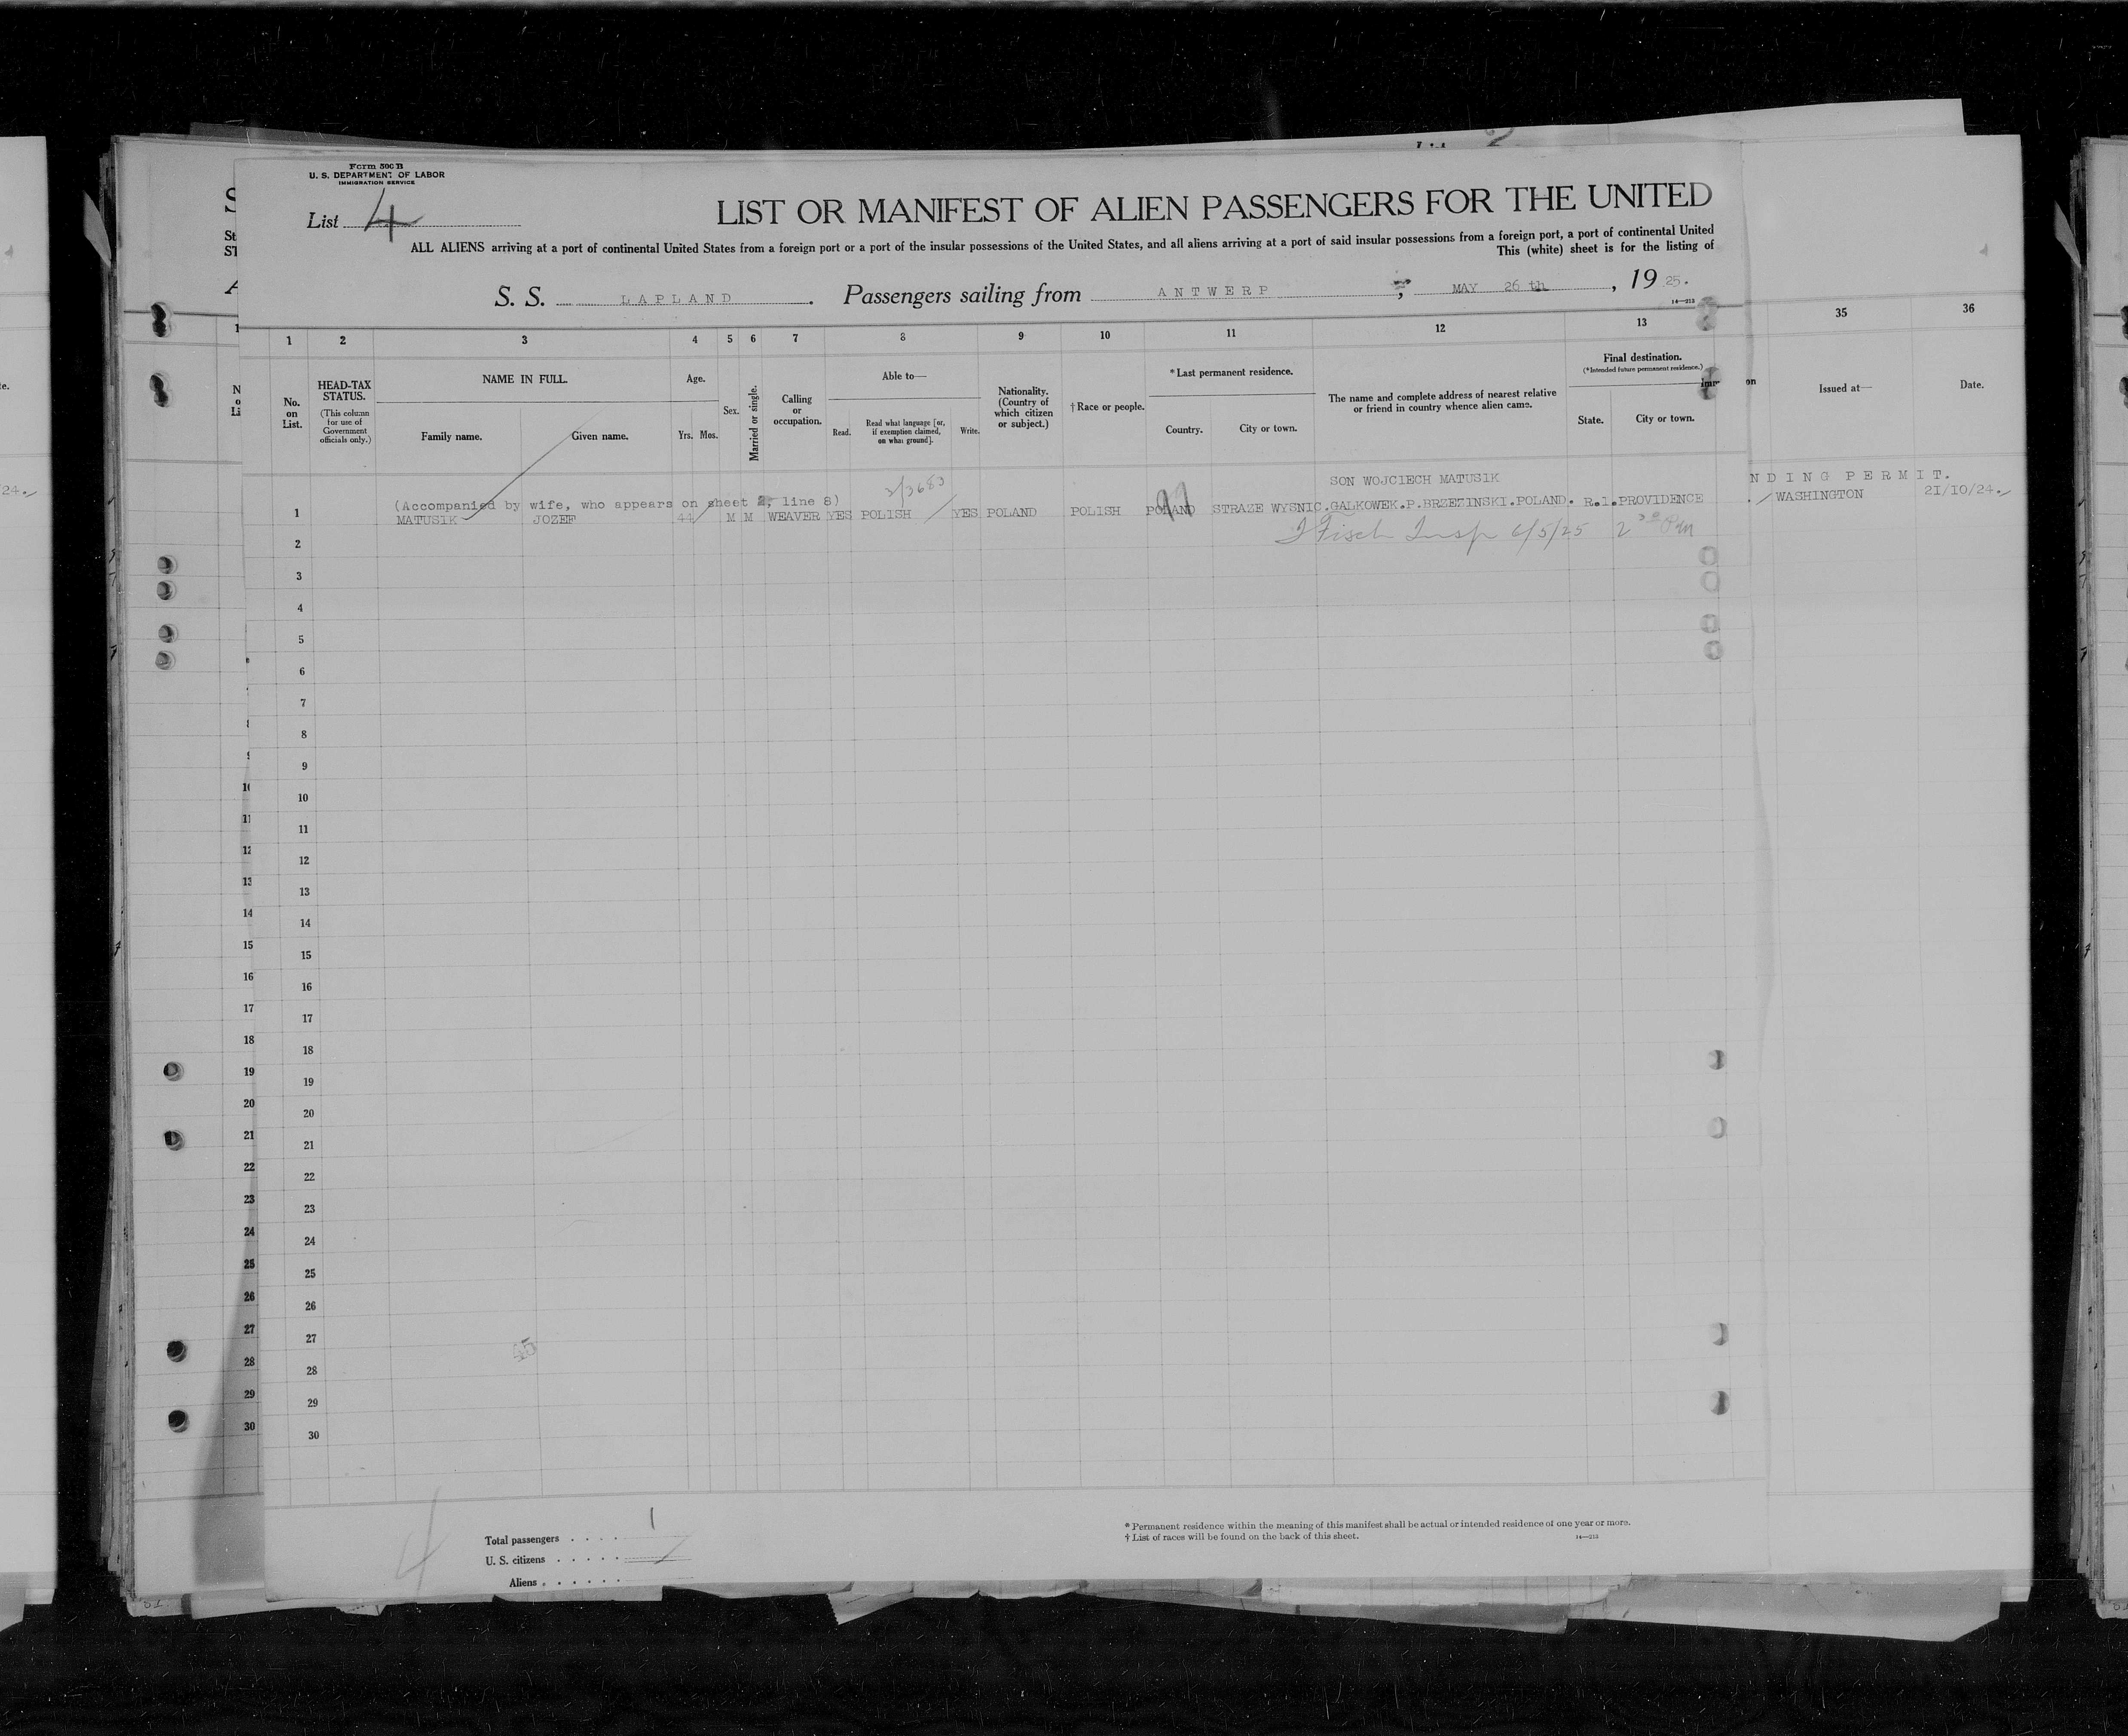 Form 500 B
U. S. DEPARTMENT OF LABOR
IMMIGRATION SERVICE
List 4
LIST OR MANIFEST OF ALIEN PASSENGERS FOR THE UNITED
ALL ALIENS arriving at a port of continental United States from a foreign port or a port of the insular possessions of the United States, and all aliens arriving at a port of said insular possessions from a foreign port, a port of continental United
This (white) sheet is for the listing of
S. S. LAPLAND. Passengers sailing from ANTWERP, MAY 26 th, 1925.
14—212
1 2 3 4 5 6 7 8 9 10 11 12 13 35 36
No. on List.
HEAD-TAX STATUS.
(This column for use of Government officials only.)
NAME IN FULL.
Family name. Given name.
Age.
Yrs. Mos.
Sex.
Married or single.
Calling or occupation.
Able to—
Read. Read what language [or, if exemption claimed, on what ground]. Write.
Nationality. (Country of which citizen or subject.)
† Race or people.
* Last permanent residence.
Country. City or town.
The name and complete address of nearest relative or friend in country whence alien came.
Final destination.
(* Intended future permanent residence.)
State. City or town.
Issued at— Date.
2/3683
SON WOJCIECH MATUSIK
NDING PERMIT.
(Accompanied by wife, who appears on sheet 2, line 8)
1 MATUSIK JOZEF 44 M M WEAVER YES POLISH YES POLAND POLISH POLAND STRAZE WYSNIC.GALKOWEK.P.BRZEZINSKI.POLAND. R.I.PROVIDENCE WASHINGTON 21/10/24.
Fisch Insp 6/5/25 2 30 PM
2
3
4
5
6
7
8
9
10
11
12
13
14
15
16
17
18
19
20
21
22
23
24
25
26
27
28
29
30
45
4
Total passengers 1
U. S. citizens
Aliens
* Permanent residence within the meaning of this manifest shall be actual or intended residence of one year or more.
† List of races will be found on the back of this sheet.
14—212